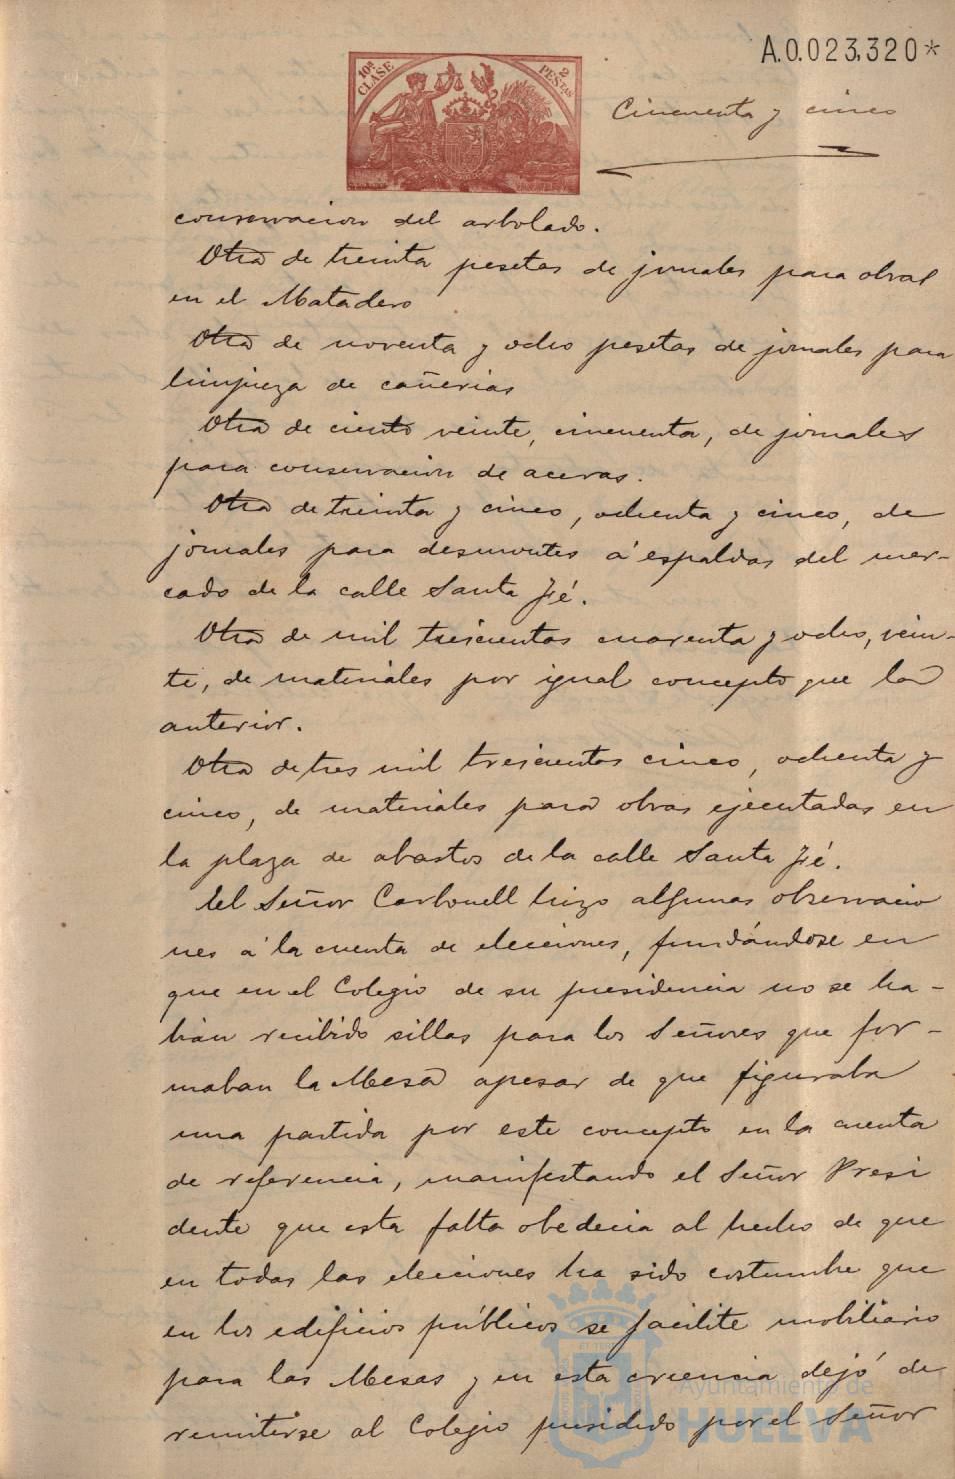 A.0.023,320*
10ª CLASE
2 PESETAS
Cincuenta y cinco
conservacion del arbolado.
Otra de treinta pesetas de jornales para obras
en el Matadero
Otra de noventa y ocho pesetas de jornales para
limpieza de cañerias
Otra de ciento veinte, cincuenta, de jornales
para conservacion de aceras.
Otra de treinta y cinco, ochenta y cinco, de
jornales para desmontes á espaldas del mer-
cado de la calle Santa Fé.
Otra de mil trescientas cuarenta y ocho, vein-
te, de materiales por igual concepto que la
anterior.
Otra de tres mil trescientos cinco, ochenta y
cinco, de materiales para obras ejecutadas en
la plaza de abastos de la calle Santa Fé.
El Señor Carbonell hizo algunas observacio
nes á la cuenta de elecciones, fundándose en
que en el Colegio de su presidencia no se ha-
bian recibido sillas para los Señores que for-
maban la Mesa apesar de que figuraba
una partida por este concepto en la cuenta
de referencia, manifestando el Señor Presi
dente que esta falta obedecia al hecho de que
en todas las elecciones ha sido costumbre que
en los edificios públicos se facilite mobiliario
para las Mesas y en esta creencia dejó de
remitirse al Colegio presidido por el Señor
Ayuntamiento de
HUELVA